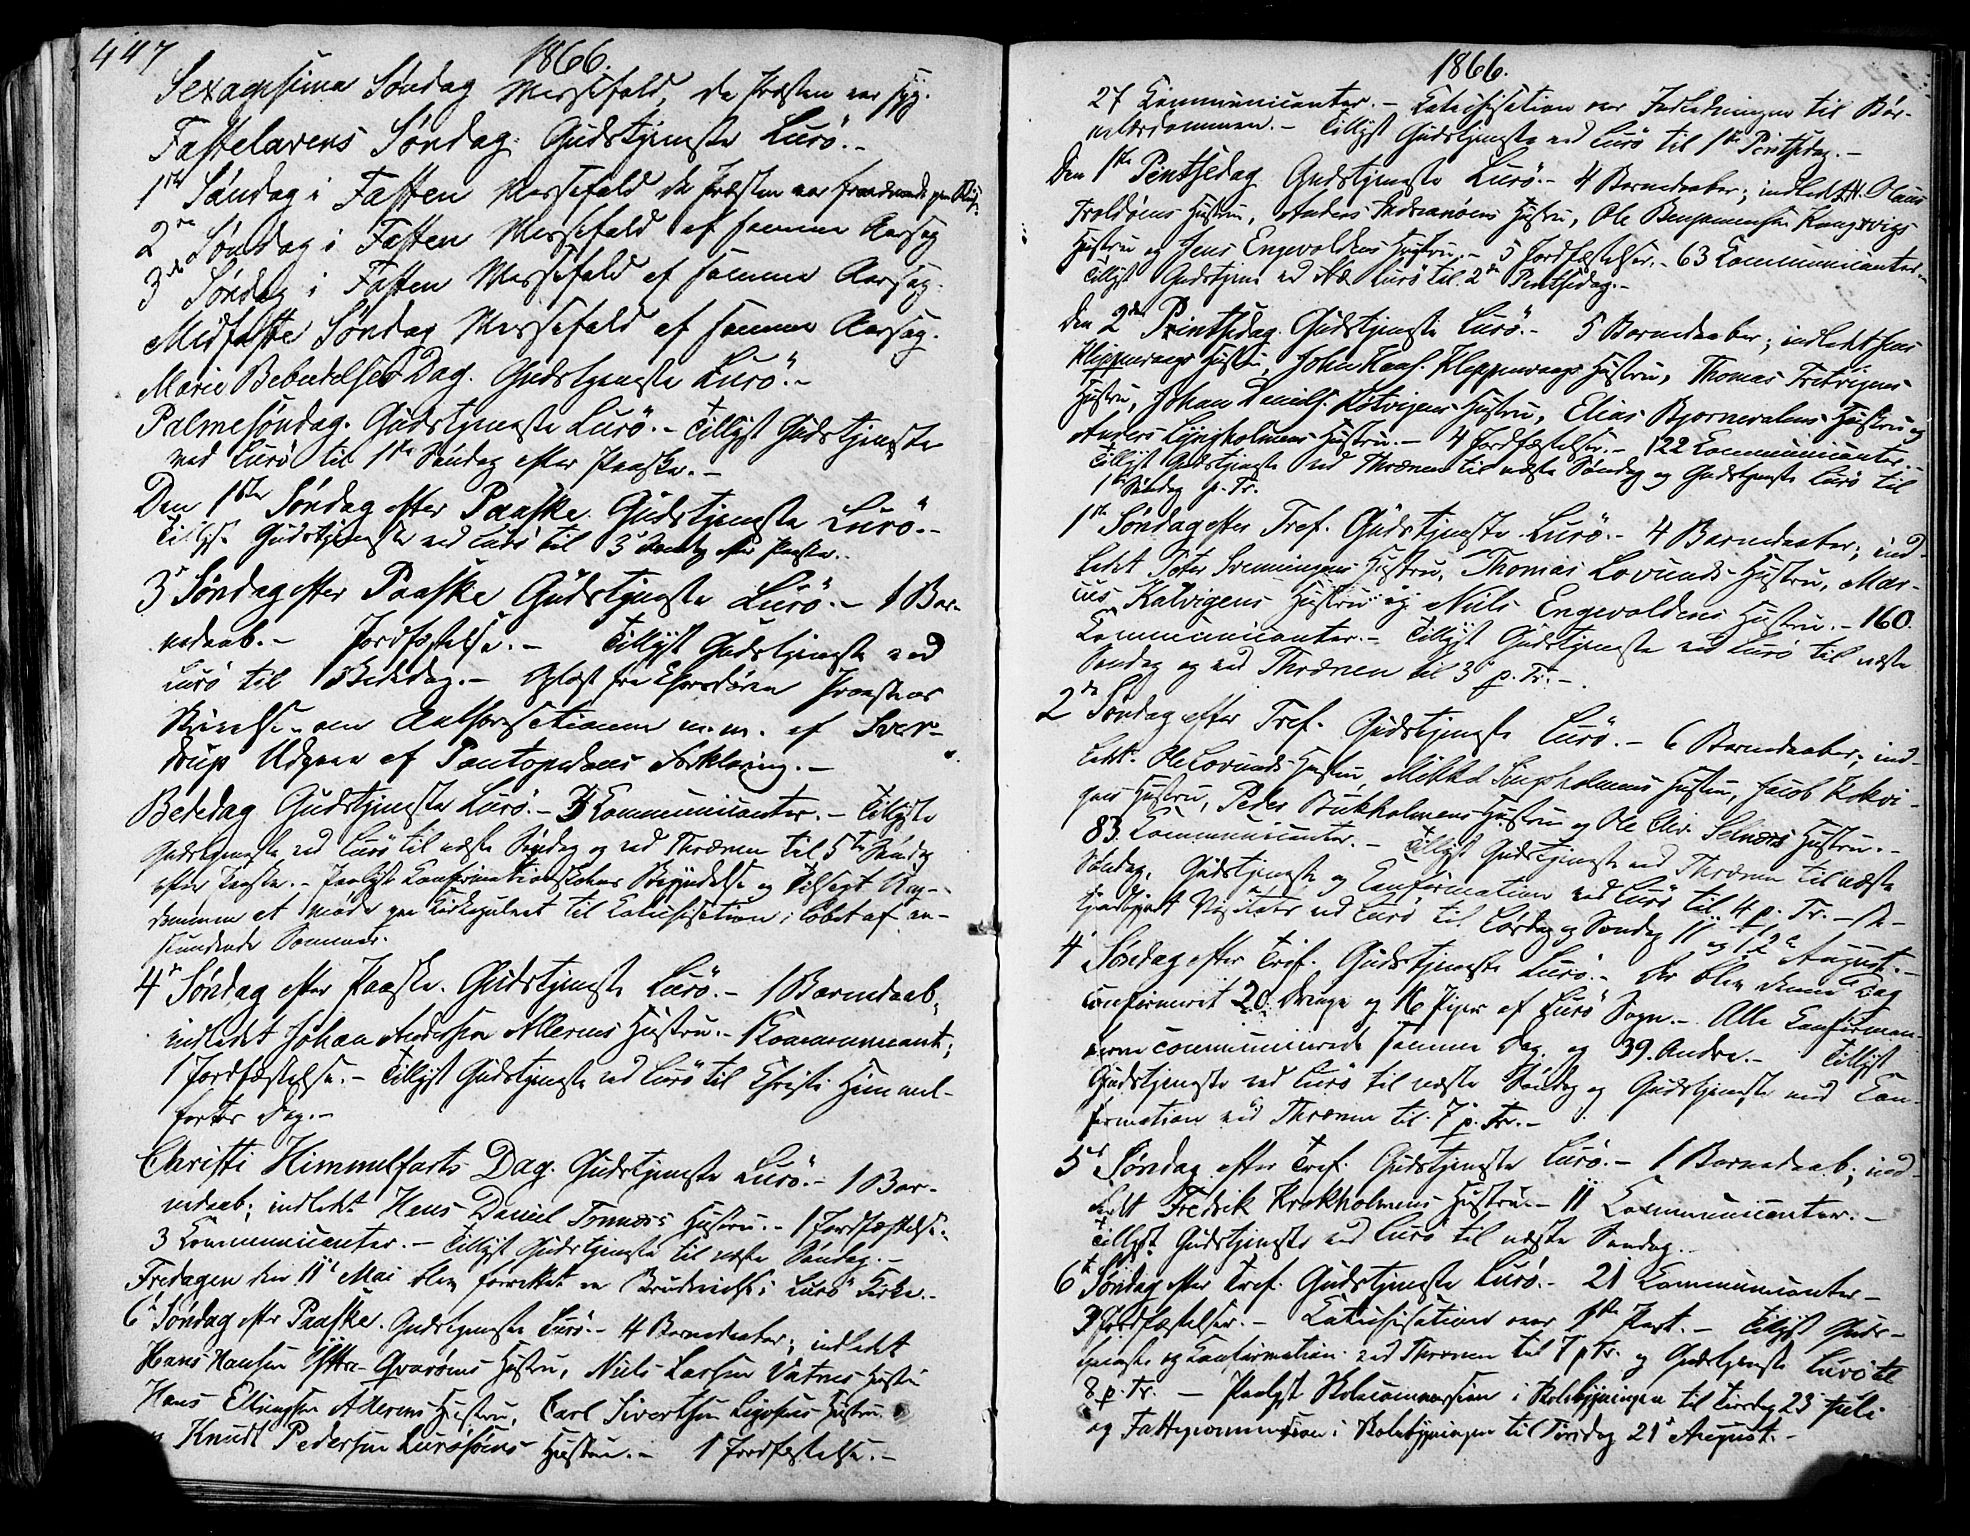 447
1866.
Sexagesima Søndag Messefald, da Præsten var syg.
Fastelavens Søndag. Gudstjeneste Lurö.-
1ste Søndag i Fasten Messefald da Præsten var fraværende
2en Søndag i Fasten Messefald af samme Aarsag
3die Søndag i Fasten Messefald af samme Aarsag.
Midfaste Søndag Messefald af samme Aarsag.
Mariæ Bebudelses Dag. Gudstjeneste Lurö.-
Palmesøndag. Gudstjeneste Lurö.- Tillyst Gudstjeneste
ved Lurö til 1ste Søndag efter Paaske.-
Den 1ste Søndag efter Paaske. Gudstjeneste Lurö.-
Tillyst Gudstjeneste ved Lurö til 3 Søndag efter Paaske.-
3e Søndag efter Paaske Gudstjeneste Lurö.- 1 Bar-
nedaab.- Jordfæstelse.- Tillyst Gudstjeneste ved
Lurö til Bededag.- Oplæst fra Chorsdøren Provstens
Skrivelse om Authorisationen m.m. af Sver-
drup Udgave af Pontoppidans Forklaring.-
Bededag Gudstjeneste Lurö.- 3 Kommunicanter.- Tillyste
Gudstjeneste ved Lurö til næste Søndag og ved Thrænen til 5te Søndag
efter Paaske.- Paalyst Konfirmationsskolens Begyndelse og Tilsagt Ung-
dommen at møde paa Kirkegulvet til Katechisation i Løbet af an-
stundende Sommer.
4e Søndag efter Paaske. Gudstjeneste Lurö.- 1 Barnedaab,
indledet Johan Andersen Alderens Hustru.- 1 Kommunicant;
1 Jordfæstelse.- Tillyst Gudstjeneste ved Lurö til Christi Himmel-
farts Dag.-
Christi Himmelfarts Dag. Gudstjeneste Lurö.- 1 Bar-
nedaab; indledet Hans Daniel Tonnæs Hustru.- 1 Jordfæstelse.
3 Kommunicanter.- Tillyst Gudstjeneste til næste Søndag.-
Fredagen den 11e Mai blev forrettet en Brudevielse i Lurö Kirke.-
6e Søndag efter Paaske. Gudstjeneste Lurö.- 4 Barnedaaber; indledet
Hans Hansen Yttre-Qvarøens Hustru, Niels Larsen Vatnes Hustru
Hans Ellingsen Alderens Hustru, Carl Sivertsen Hustru
Knudt Pedersen Hustru.- 1 Jordfæstelse.-
1866.
27 Kommunicanter.- Katechisation over Indledningen til Bør-
nelærdommen.- Tillyst Gudstjeneste ved Lurö til 1ste Pintsedag.-
Den 1ste Pintsedag Gudstjeneste Lurö.- 4 Barnedaaber; indledet Olaus
Troldøens Hustru, Anders Hustru, Ole Benjaminsen Kongsvigs
Hustru og Jens Engevoldsens Hustru.- 5 Jordfæstelser.- 63 Kommunicanter.-
Tillyst Gudstjen ved Lurö til 2den Pintsedag.-
Den 2den Pintsedag. Gudstjeneste Lurö.- 5 Barnedaaber; indledet Jens
Kleppevaags Hustru, Johan Kleppevaags Hustru, Thomas Hustru,
Johan Daniels. Kotvigens Hustru, Elias Bjornevalens Hustru og
Anders Lyngholmens Hustru.- 4 Jordfæstelser.- 122 Kommunicanter.-
Tillyst Gudstjeneste ved Thrænen til næste Søndag og Gudstjeneste Lurö til
1ste Søndag p. Tr.
1ste Søndag efter Tref. Gudstjeneste Lurö.- 4 Barnedaaber; ind-
ledet Peter Svenningsens Hustru, Thomas Lovunds Hustru, Mar-
cus Kalvigens Hustru og Niels Engevoldsens Hustru.- 160
Kommunicanter.- Tillyst Gudstjeneste ved Lurö til næste
Søndag og ved Thrænen til 3e p. Tr.-
2den Søndag efter Tref. Gudstjeneste Lurö.- 6 Barnedaaber; ind-
ledet: Ole Lovunds Hustru, Mikkel Hustru, Jacob Kokvi-
gens Hustru, Peder Bukholmens Hustru og Ole Chr. Selnæs Hustru.-
83. Kommunicanter.- Tillyst Gudstjeneste ved Thrænen til næste
Søndag, Gudstjeneste og Confirmation ved Lurö til 4 p. Tr.-
Visitats ved Lurö til Lørdag og Søndag 11 og 12e August.-
4e Søndag efter Tref. Gudstjeneste Lurö.- Der blev denne Dag
confirmeret 20 Drenge og 16 Piger af Lurö Sogn.- Alle Confirman-
derne communicerede samme Dag og 39 Andre.- Tillyst
Gudstjeneste ved Lurö til næste Søndag og Gudstjeneste med Con-
firmation ved Thrænen til 7 p. Tr.-
5e Søndag efter Tref. Gudstjeneste Lurö.- 1 Barnedaab; ind-
ledet Fredrik Krokholmens Hustru.- 11 Communicanter.-
Tillyst Gudstjeneste ved Lurö til næste Søndag.-
6te Søndag efter Tref. Gudstjeneste Lurö.- 21 Kommunicanter.-
3 Jordfæstelser.- Katechisation over 1ste Part.- Tillyst Guds-
tjeneste og Confirmation ved Thrænen til 7 p. Tr. og Gudstjeneste Lurö til
8 p. Tr.- Paalyst Skolecommission i Skolebygningen til Tirsdag 23 Juli
og Fattigcommission i Skolebygningen til Tirsdag 21e August.-